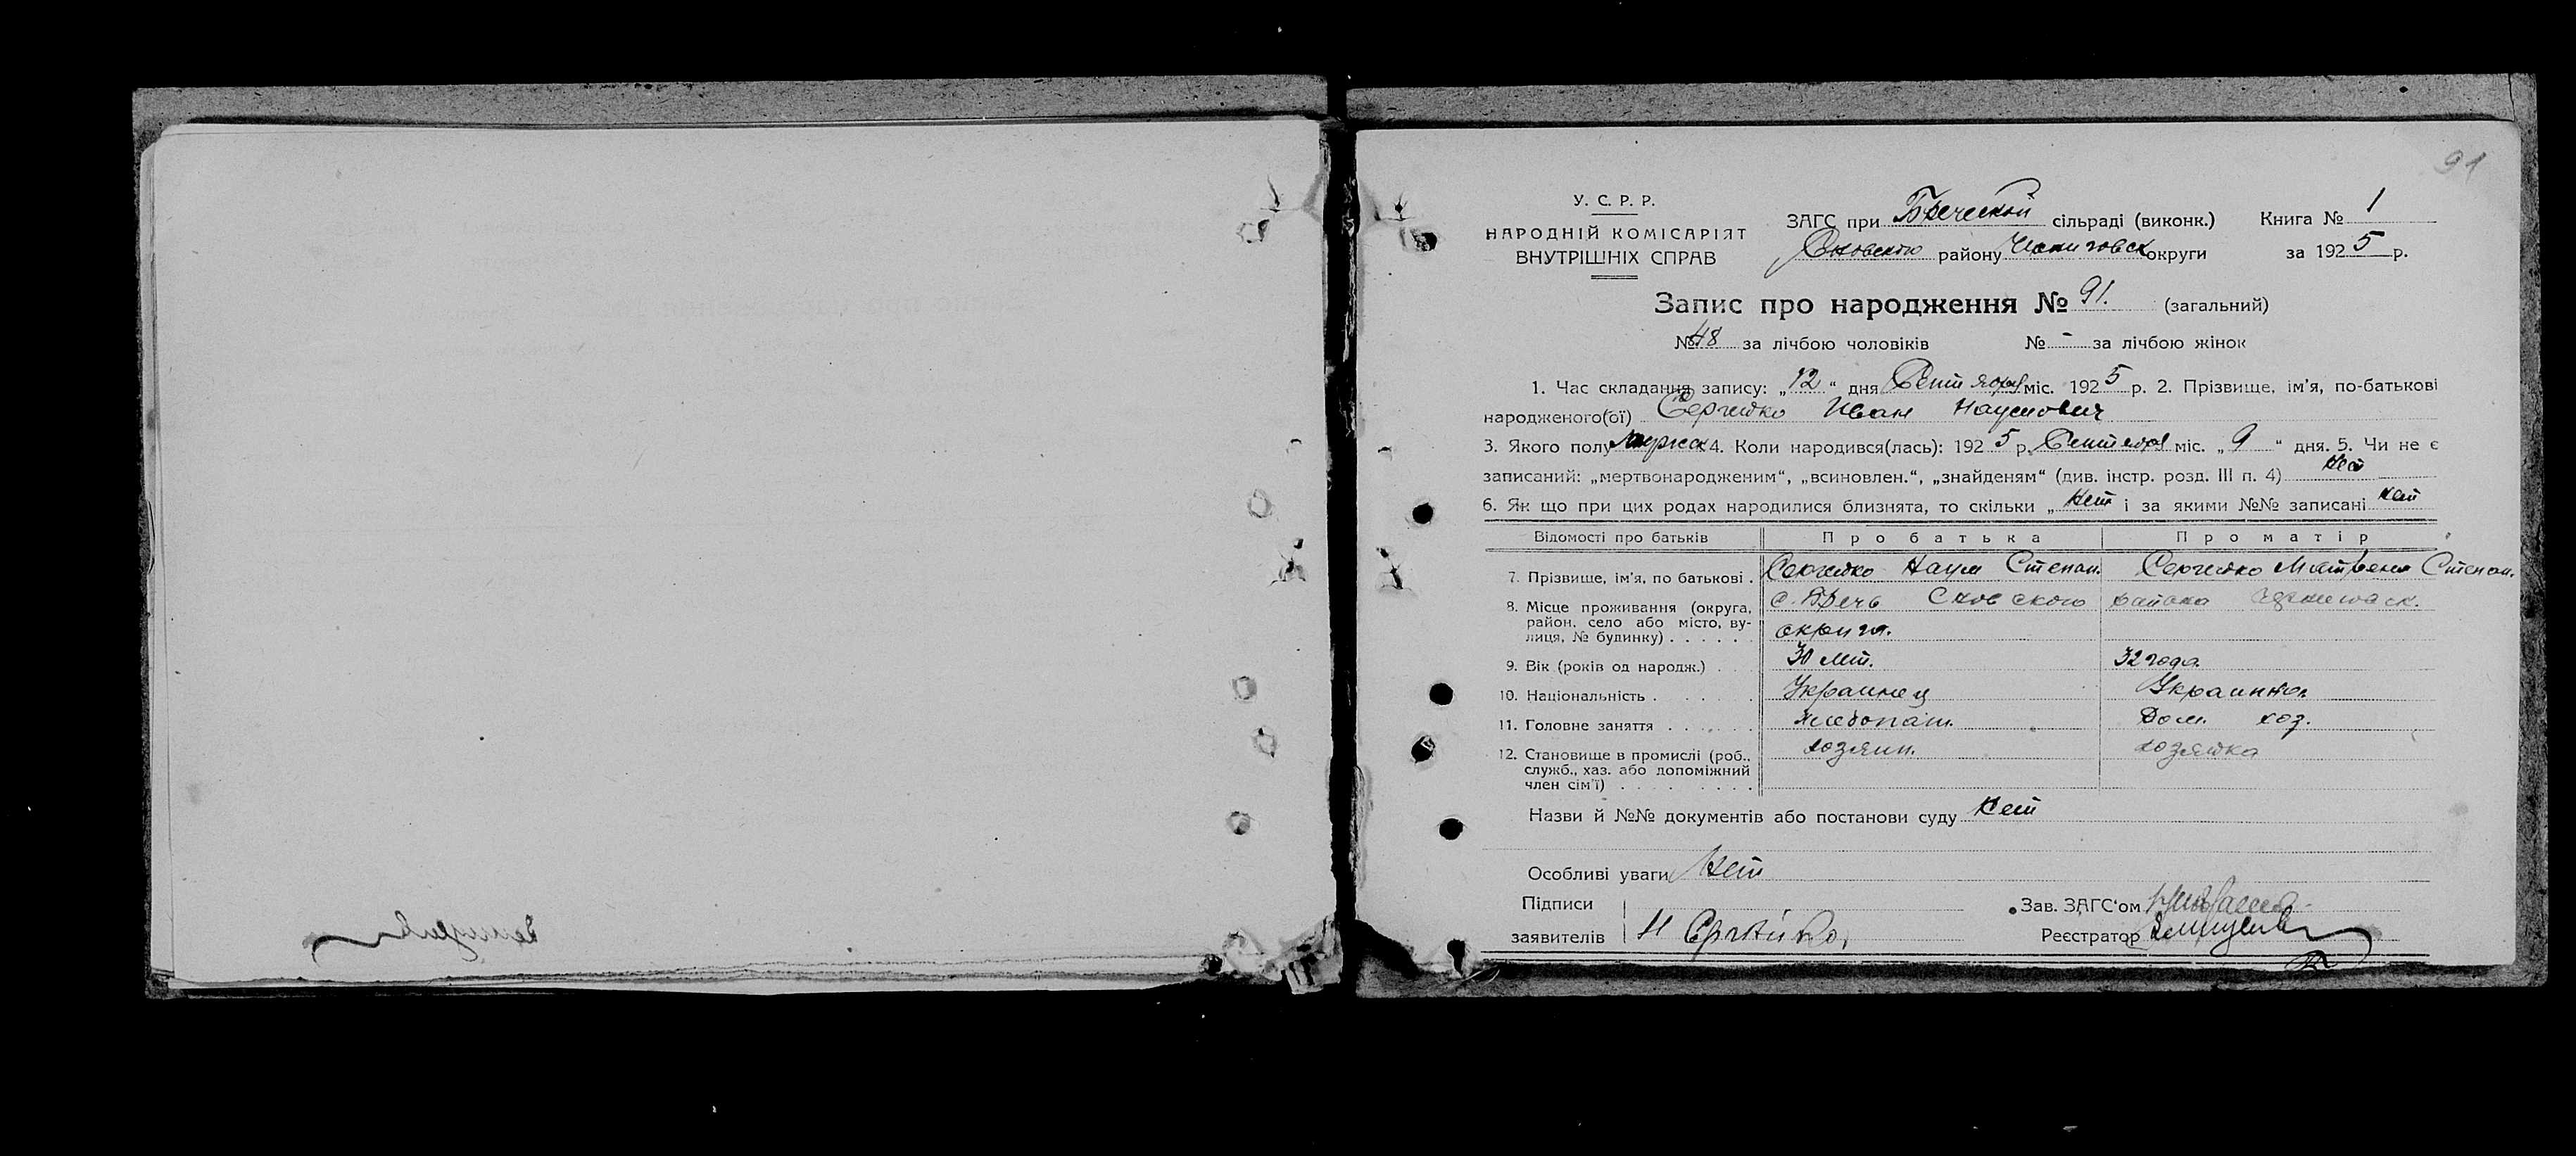 91
У. С. Р. Р.
НАРОДНІЙ КОМІСАРІЯТ
ВНУТРІШНІХ СПРАВ
ЗАГС при Бречской сільраді (виконк.) Книга № 1
Сновского району Черниговск округи за 1925 р.
Запис про народження № 91. (загальний)
№ 48 за лічбою чоловіків № - за лічбою жінок
1. Час складання запису: „12“ дня Сентября міс. 1925 р. 2. Прізвище, ім’я, по-батькові
народженого(ої) Сергейко Иван Наумович
3. Якого полу мужск 4. Коли народився(лась): 1925 р. Сентября міс. „9“ дня. 5. Чи не є
записаний: „мертвонародженим“, „всиновлен.“, „знайденям“ (див. інстр. розд. III п. 4) нет
6. Як що при цих родах народилися близнята, то скільки „ нет і за якими №№ записані нет
Відомості про батьків Про батька Про матір
7. Прізвище, ім’я, по батькові . Сергейко Наум Степан. Сергейко Матрена Степан.
8. Місце проживання (округа, с. Бречь Сновского района Черниговск.
район, село або місто, ву-
лиця, № будинку) . . . . . . округи.
9. Вік (років од народж.) . . . 30 лет. 32 года
10. Національність . . . . . Украинец Украинка
11. Головне заняття . . . . . . хлебопаш. Дом. хоз.
12. Становище в промислі (роб., хозяин. хозяйка
служб., хаз. або допоміжний
член сім’ї) . . . . . . . . .
Назви й №№ документів або постанови суду нет
Особливі уваги нет
Підписи
заявителів Н Сргейко,
Зав. ЗАГС‘ом
Реєстратор